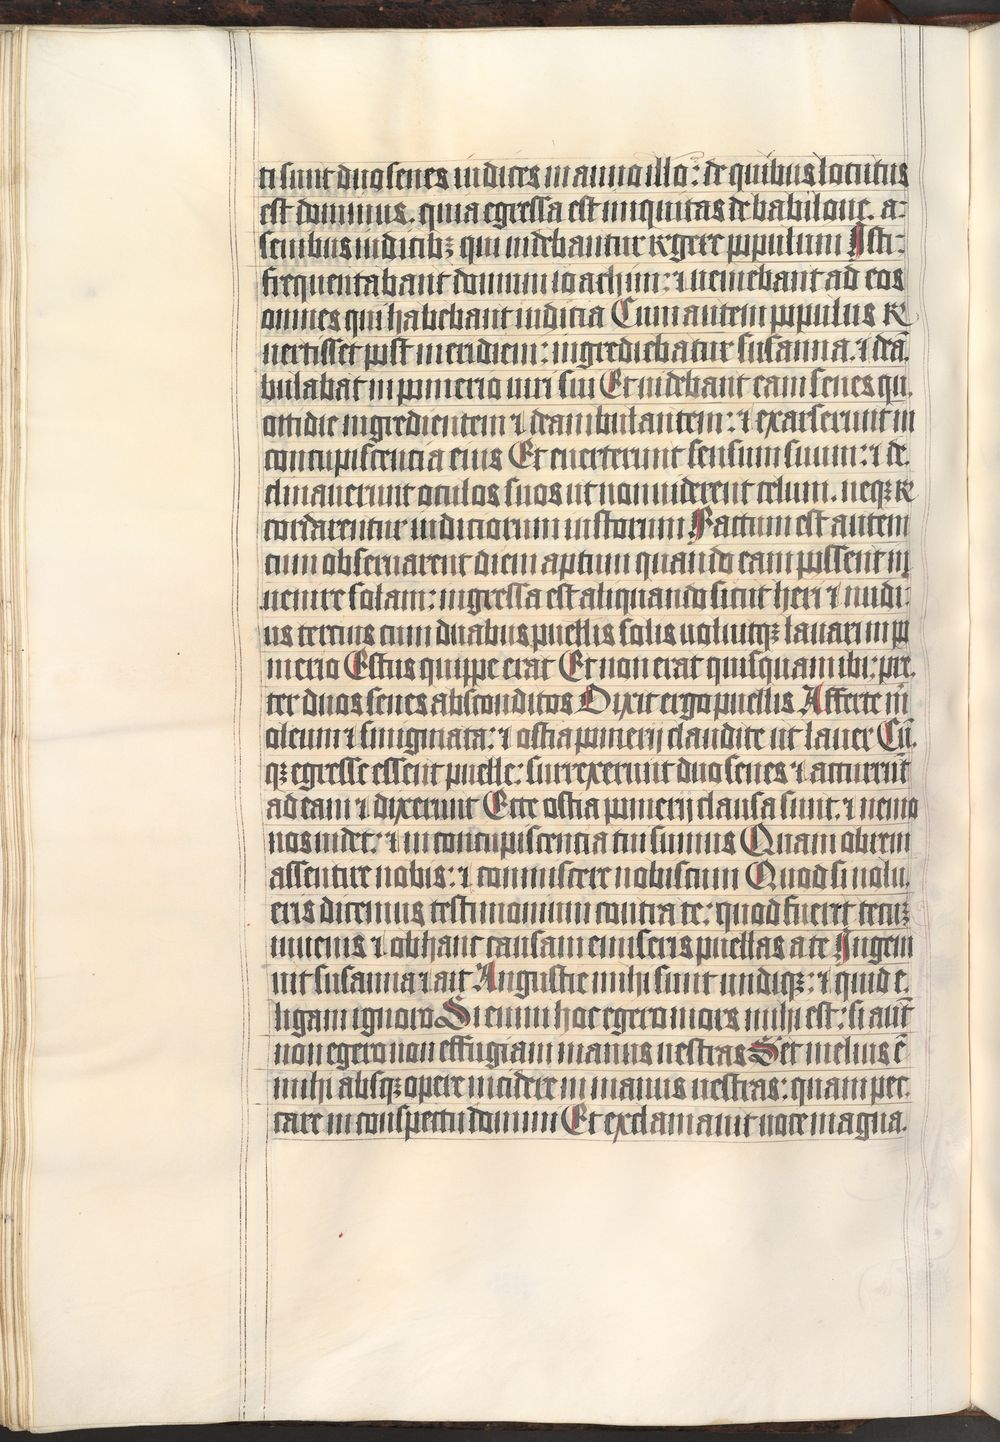 ti sunt duo senes iudices in anno illo: de quibus locutus
est dominus. quia egressa est iniquitas de babilone. a
senibus iudicibꝫ qui uidebantur regere populum Isti
frequentabant domum ioachim: ⁊ ueniebant ad eos
omnes qui habebant iudicia Cum autem populus re
uertisset post meridiem: ingrediebatur susanna. ⁊ deā
bulabat in pomerio uiri sui Et uidebant eam senes qu
ottidie ingredientem ⁊ deambulantem: ⁊ exarserunt in
concupiscencia eius Et euerterunt sensum suum: ⁊ de
clinauerunt oculos suos ut non uiderent celum. neqꝫ re
cordarentur iudiciorum iustorum Factum est autem
cum obseruarent diem aptum quando eam possent in
uenire solam: ingressa est aliquando sicut heri ⁊ nudi
us tercius cum duabus puellis solis uoluitqꝫ lauari in po
merio Estus quippe erat Et non erat quisquam ibi: pre
ter duos senes absconditos Dixit ergo puellis Afferte m̄
oleum ⁊ smigmata: ⁊ ostia pomerij claudite ut lauer Cū
qꝫ egresse essent puelle: surrexerunt duo senes ⁊ accurrerūt
ad eam ⁊ dixerunt Ecce ostia pomerij clausa sunt. ⁊ nemo
nos uidet: ⁊ in concupiscencia tui sumus Quam obrem
assentire nobis: ⁊ commiscere nobiscum Quod si nolu
eris dicemus testimonium contra te: quod fuerit tecuꝫ
iuuenis ⁊ ob hanc causam emiseris puellas a te Ingem
uit susanna ⁊ ait Angustie mihi sunt undiqꝫ: ⁊ quid e
ligam ignoro Si enim hoc egero mors mihi est: si aūt
non egero non effugiam manus uestras Set melius ē
mihi absqꝫ opere incidere in manus uestras: quam pec
care in conspectu domini Et exclamauit uoce magna